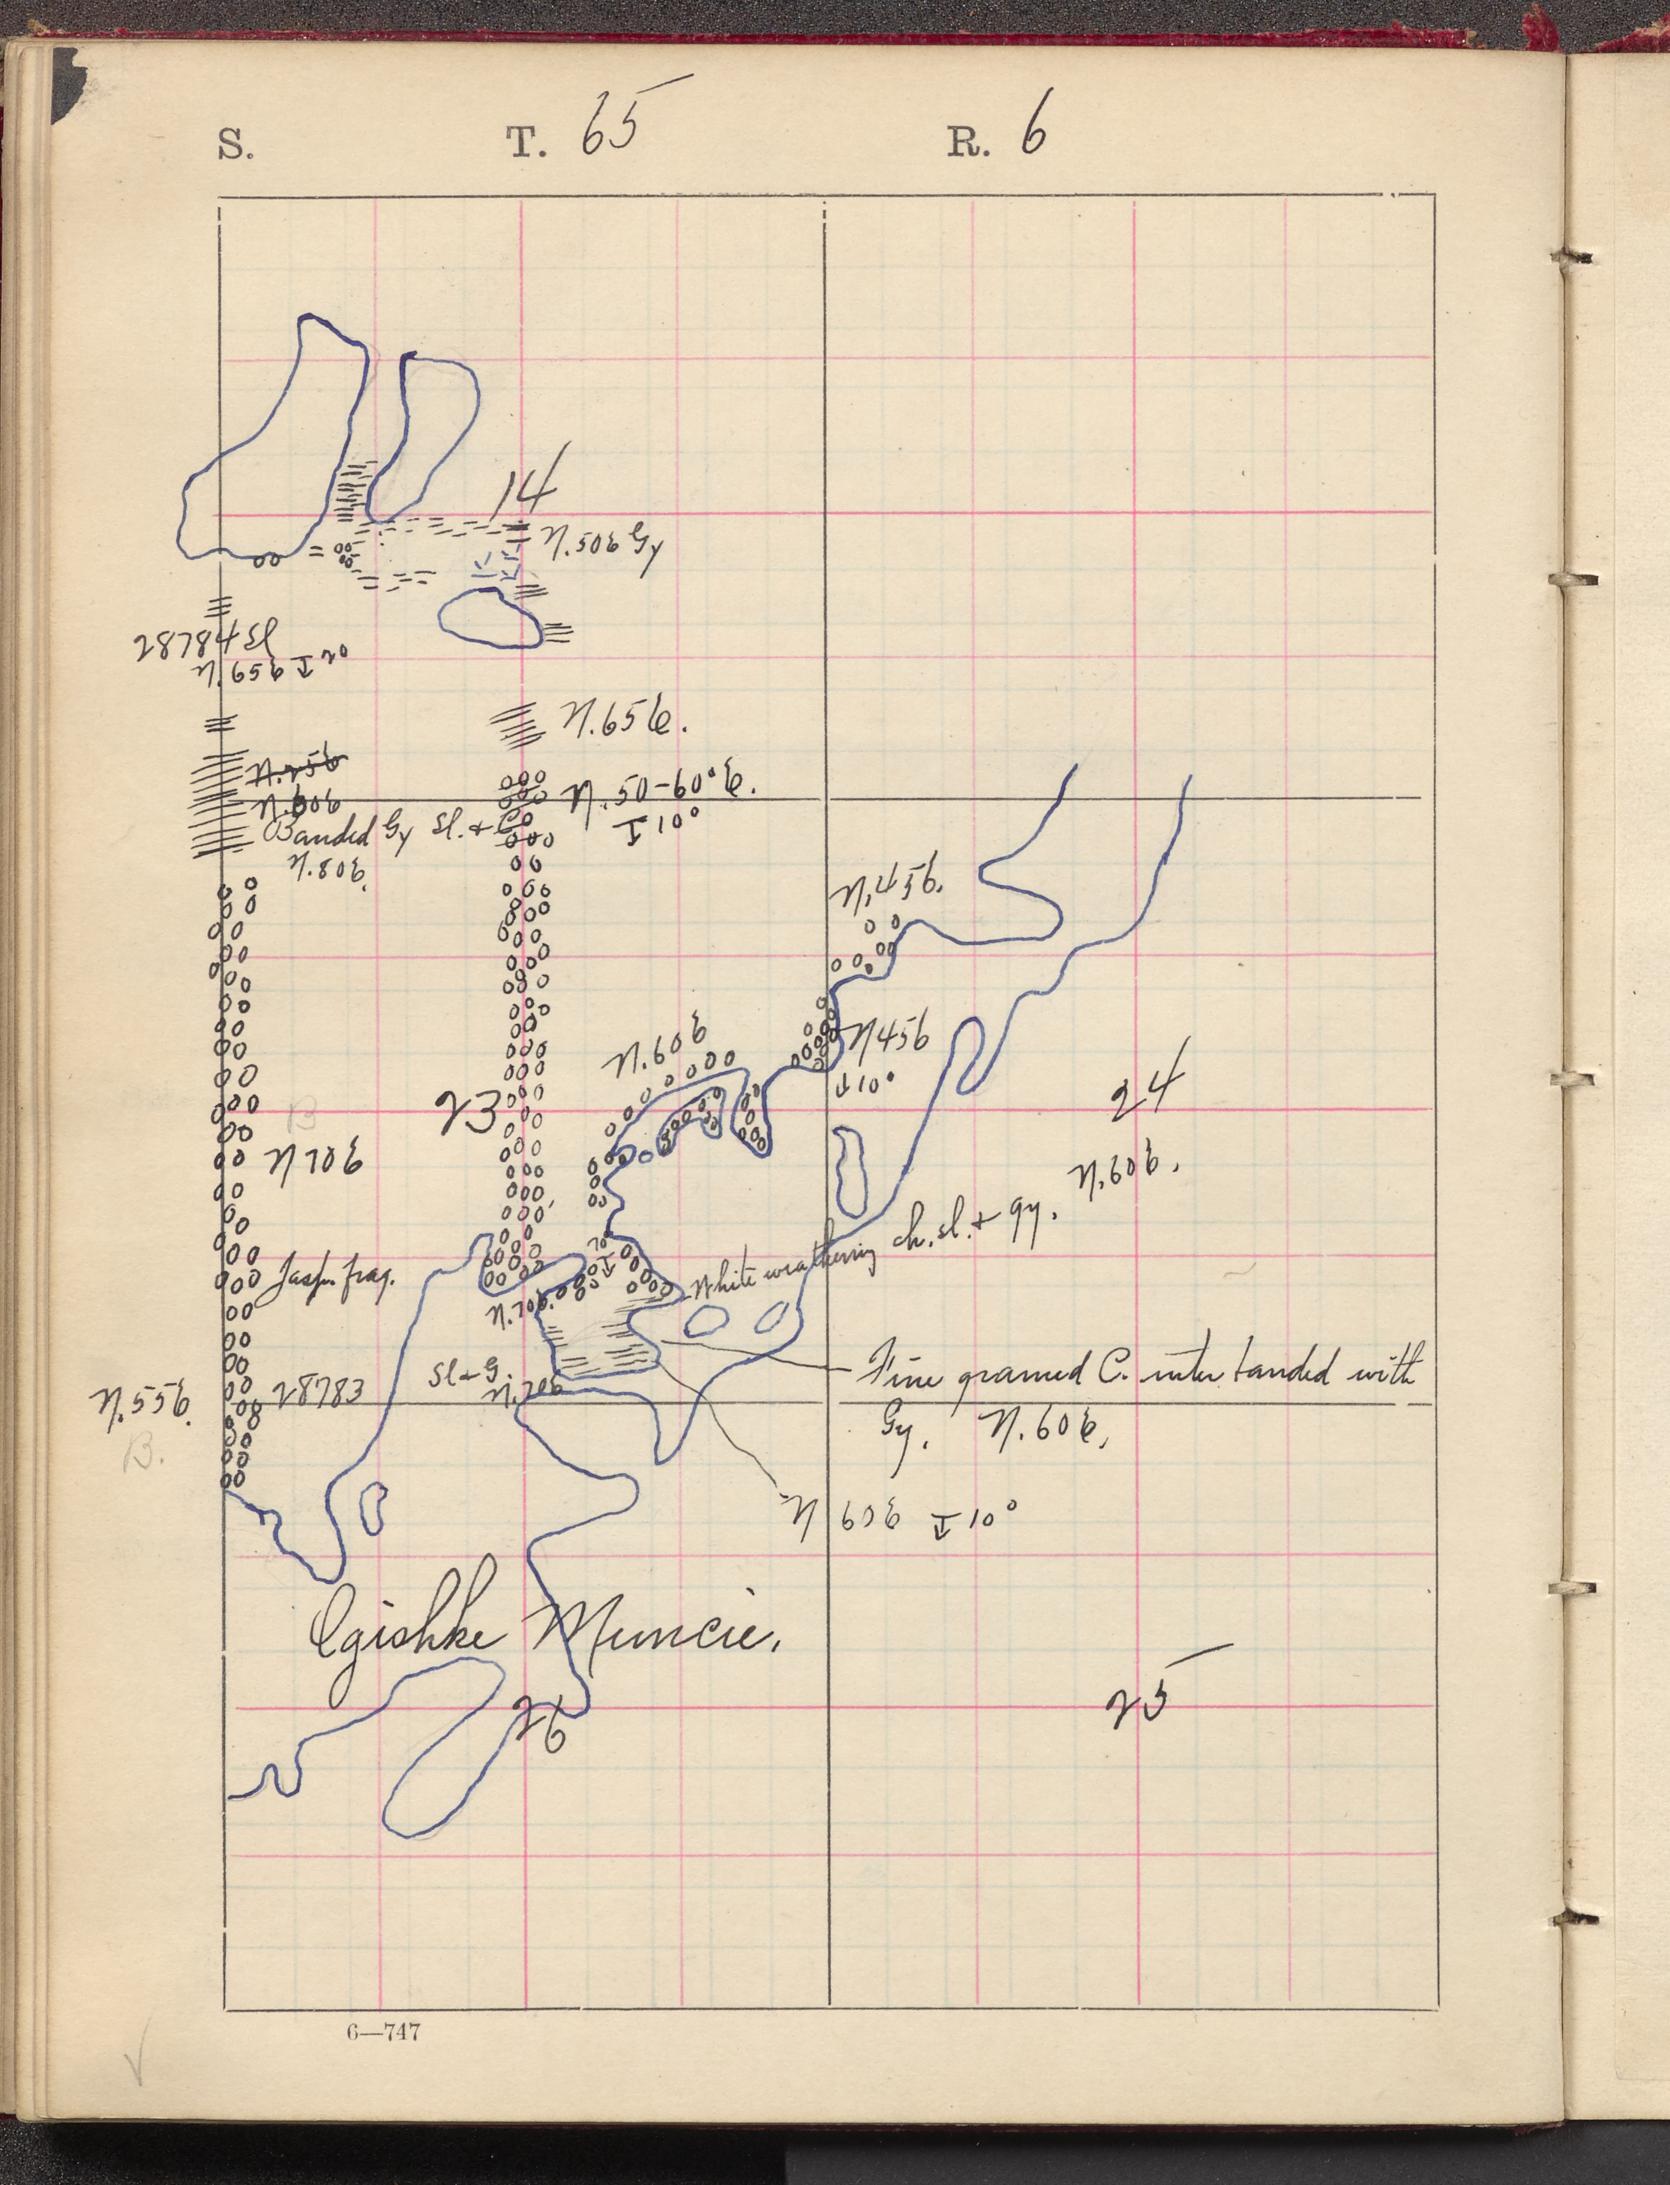 S. T. 65 R. 6
14
N.50E Gy
28784 Sl
N.65E ⊥ 20
N.65E.
N.25E
N.60E
N.50-60°E.
⊥ 10°
Banded Gy Sl. + C
N.80E.
N.45E.
N.60E
N45E
10°
23
24
N70E
N.60E.
White weathering ch. sl. + gy.
70
Jasp. frag.
N.70E.
Sl + G.
N.70E
Fine grained C. inter banded with
Gy. N.60E.
N.55E.
28783
B.
B
N 60E ⊥ 10°
Ogishke Muncie.
26
25
6—747